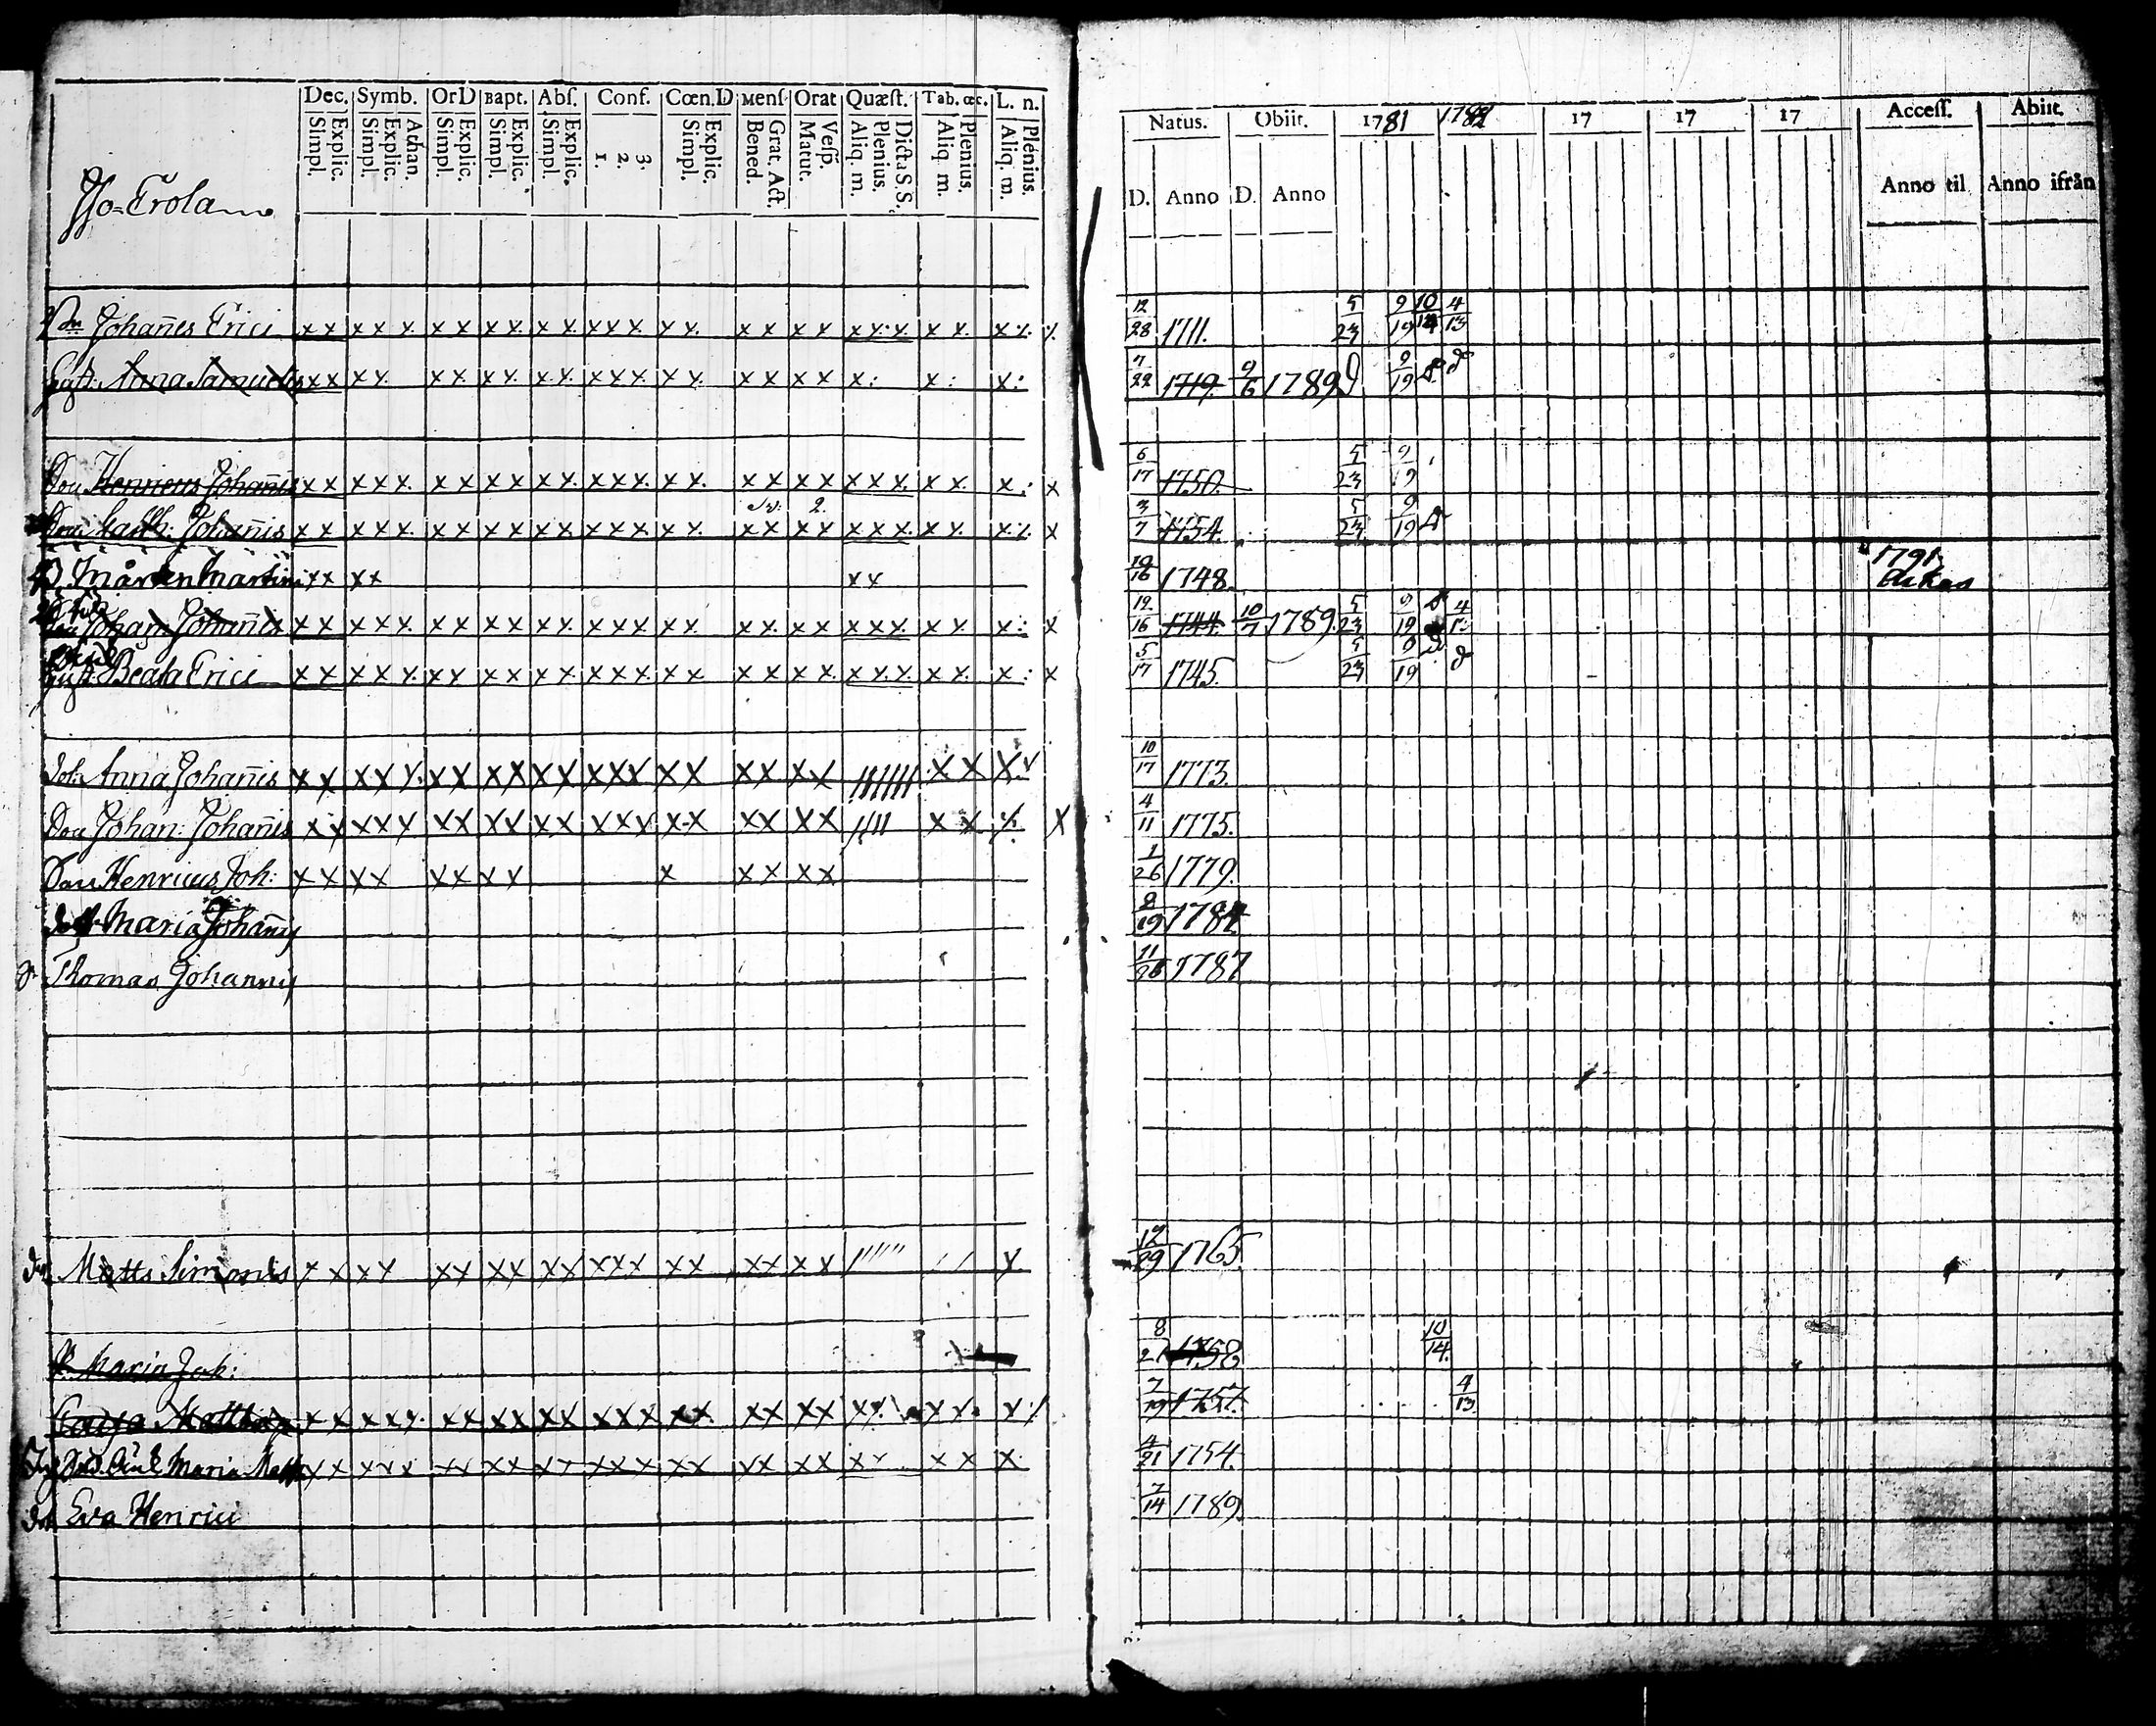 Dec. Symb. OrD Bapt. Abſ. Conf. Cœn.D Menſ. Orat Quæſt. Tab. œc. L. n.
Simpl. Explic. Simpl. Explic. Athan. Simpl. Explic. Simpl. Explic. Simpl. Explic. 1. 2. 3. Simpl. Explic. Bened. Grat. Act. Matut. Veſp. Aliq. m. Plenius. Dicta S. S. Aliq. m. Plenius. Aliq. m. Plenius.
Natus. Obiit. 1781 1782 17 17 17 Acceſſ. Abiit.
D. Anno D. Anno Anno til Anno ifrån
Iſo=Erola
Johañes Erici x x x x x x x x x x x x x x x x x x x x x x x x x x 12/28 1711. 5/23 9/19 4/13
Anna Samuelis x x x x x x x x x x x x x x x x x x x x x 7/22 1719. 9/6 1789 9/19
Son Henricus Johañis x x x x x x x x x x x x x x x x x x x x x x x x x x x 6/17 1750. 5/23 9/19
Johañis x x x x x x x x x x x x x x x x x x x x x x x x x x x 3/7 1754. 5/23 9/19
Mårten Martini x x x x x x 1748. 1791
Johan Johañis x x x x x x x x x x x x x x x x x x x x x x x x x x x 12/16 1744. 10/7 1789. 5/23 9/19 4/13
Beata Erici x x x x x x x x x x x x x x x x x x x x x x x x x x x 5/17 1745. 5/23 9/19
Dot. Anna Johañis x x x x x x x x x x x x x x x x x x x x x x x 10/17 1773.
Son Johan: Johañis x x x x x x x x x x x x x x x x x x x x x x x x 4/11 1775.
Son Henricus Joh: x x x x x x x x x x x x x 1/26 1779.
Maria Johañis 8/19 1784
Thomas Johannis 1787
Matts Simonis x x x x x x x x x x x x x x x x x x x x x 12/29 1765.
Maria Joh: 8/21 1758 10/14.
Caisa x x x x x x x x x x x x x x x x x x x x x x x x x 7/19 1757. 4/13.
Maria x x x x x x x x x x x x x x x x x x x x x x x x x 4/21 1754.
Eva Henrici 7/14 1789.